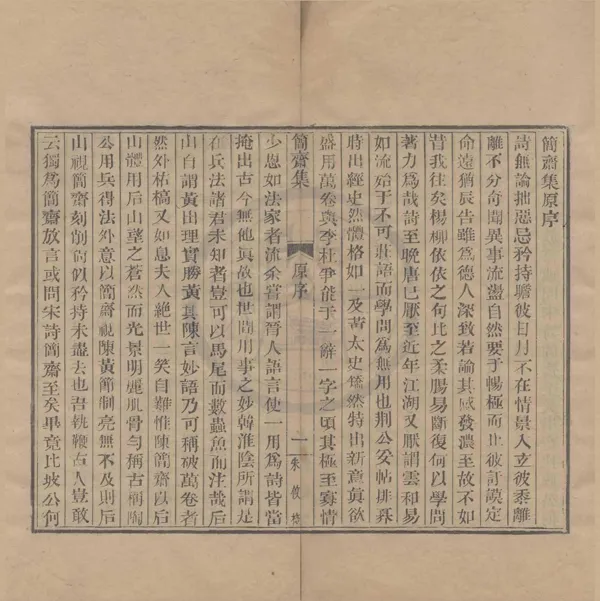 簡齋集原序
詩無論拙惡忌矜持瞻彼日月不在情景入玄彼黍離
離不分奇聞異事流盪自然要于暢極而止彼訏謨定
命遠猶辰告雖爲德人深致若論其感發濃至故不如
昔我往矣楊柳依依之句比之柔腸易斷復何以學問
著力爲哉詩至晚唐已厭至近年江湖又厭謂雲和易
如流殆于不可莊語而學問爲無用也荆公妥帖排奡
時出經史然體格如一及黃太史矯然特出新意眞欲
盡用萬卷與李杜爭能于一辭一字之頃其極至寡情
少恩如法家者流余嘗謂晉人語言使一用爲詩皆當
掩出古今無他眞故也世間用事之妙韓淮陰所謂是
在兵法諸君未知者豈可以馬尾而數蟲魚而注哉后
山自謂黃出理實勝黃其陳言妙語乃可稱破萬卷者
然外枯槁又如息夫人絕世一笑自難惟陳簡齋以后
山體用后山望之蒼然而光景明麗肌骨勻稱古稱陶
公用兵得法外意以簡齋視陳黃節制亮無不及則后
山視簡齋刻削尙似矜持未盡去也吾執鞭古人豈敢
云獨爲簡齋放言或問宋詩簡齋至矣畢竟比坡公何
簡齋集
原序
一
朱俊